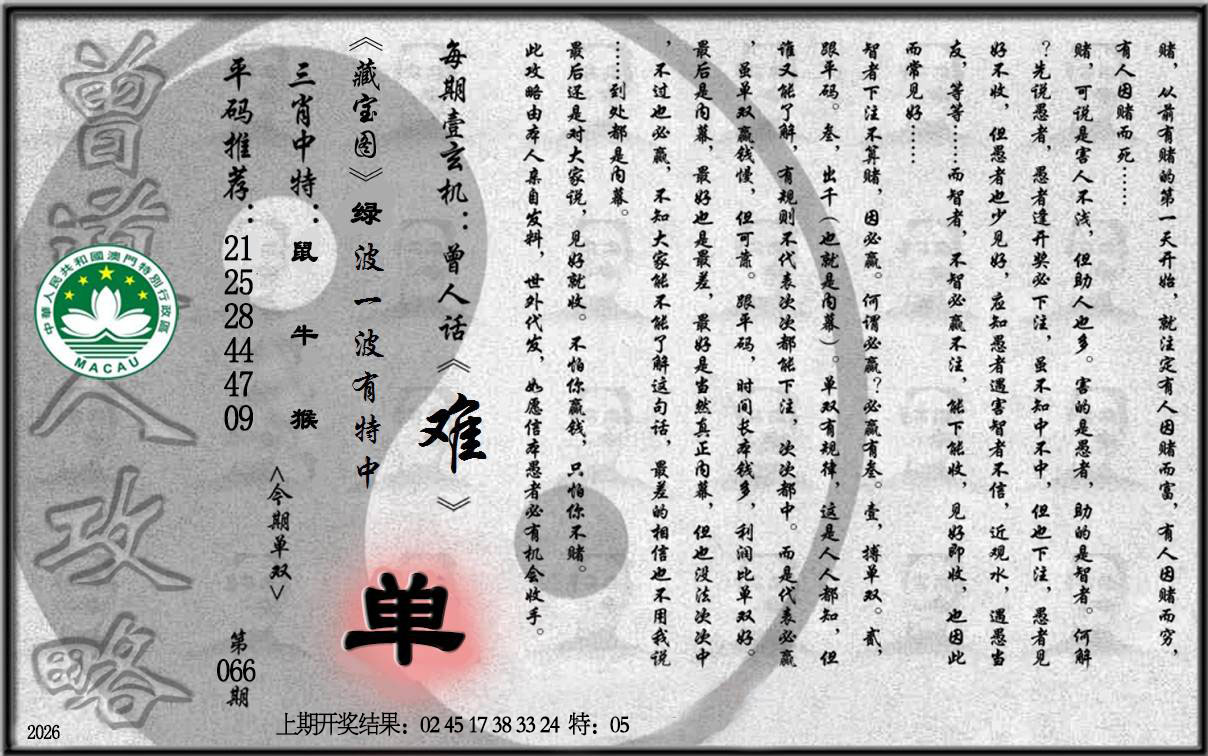 赌，从前有赌的第一天开始，就注定有人因赌而富，有人因赌而穷，
有人因赌而死……
赌，可说是害人不浅，但助人也多。害的是愚者，助的是智者。何解
？先说愚者，愚者逢开奖必下注，虽不知中不中，但也下注，愚者见
好不收，但愚者也少见好，应知愚者遇害智者不信，近观水，遇愚当
友，等等……而智者，不智必赢不注，能下能收，见好即收，也因此
而常见好……
智者下注不算赌，因必赢。何谓必赢？必赢有叁。壹，搏单双。贰，
跟平码。叁，出千（也就是内幕）。单双有规律，这是人人都知，但
谁又能了解，有规则不代表次次都能下注，次次都中。而是代表必赢
，虽单双赢钱慢，但可靠。跟平码，时间长本钱多，利润比单双好。
最后是内幕，最好也是最差，最好是当然真正内幕，但也没法次次中
，不过也必赢，不知大家能不能了解这句话，最差的相信也不用我说
……到处都是内幕。
最后还是对大家说，见好就收。不怕你赢钱，只怕你不赌。
此攻略由本人亲自发料，世外代发，如愿信本愚者必有机会收手。
每期壹玄机：曾人话《难》
《藏宝图》绿波一波有特中
单
三肖中特：鼠牛猴
<今期单双>
平码推荐：21 25 28 44 47 09
第066期
曾道人攻略
中華人民共和國澳門特別行政區
MACAU
上期开奖结果：02 45 17 38 33 24 特：05
2026